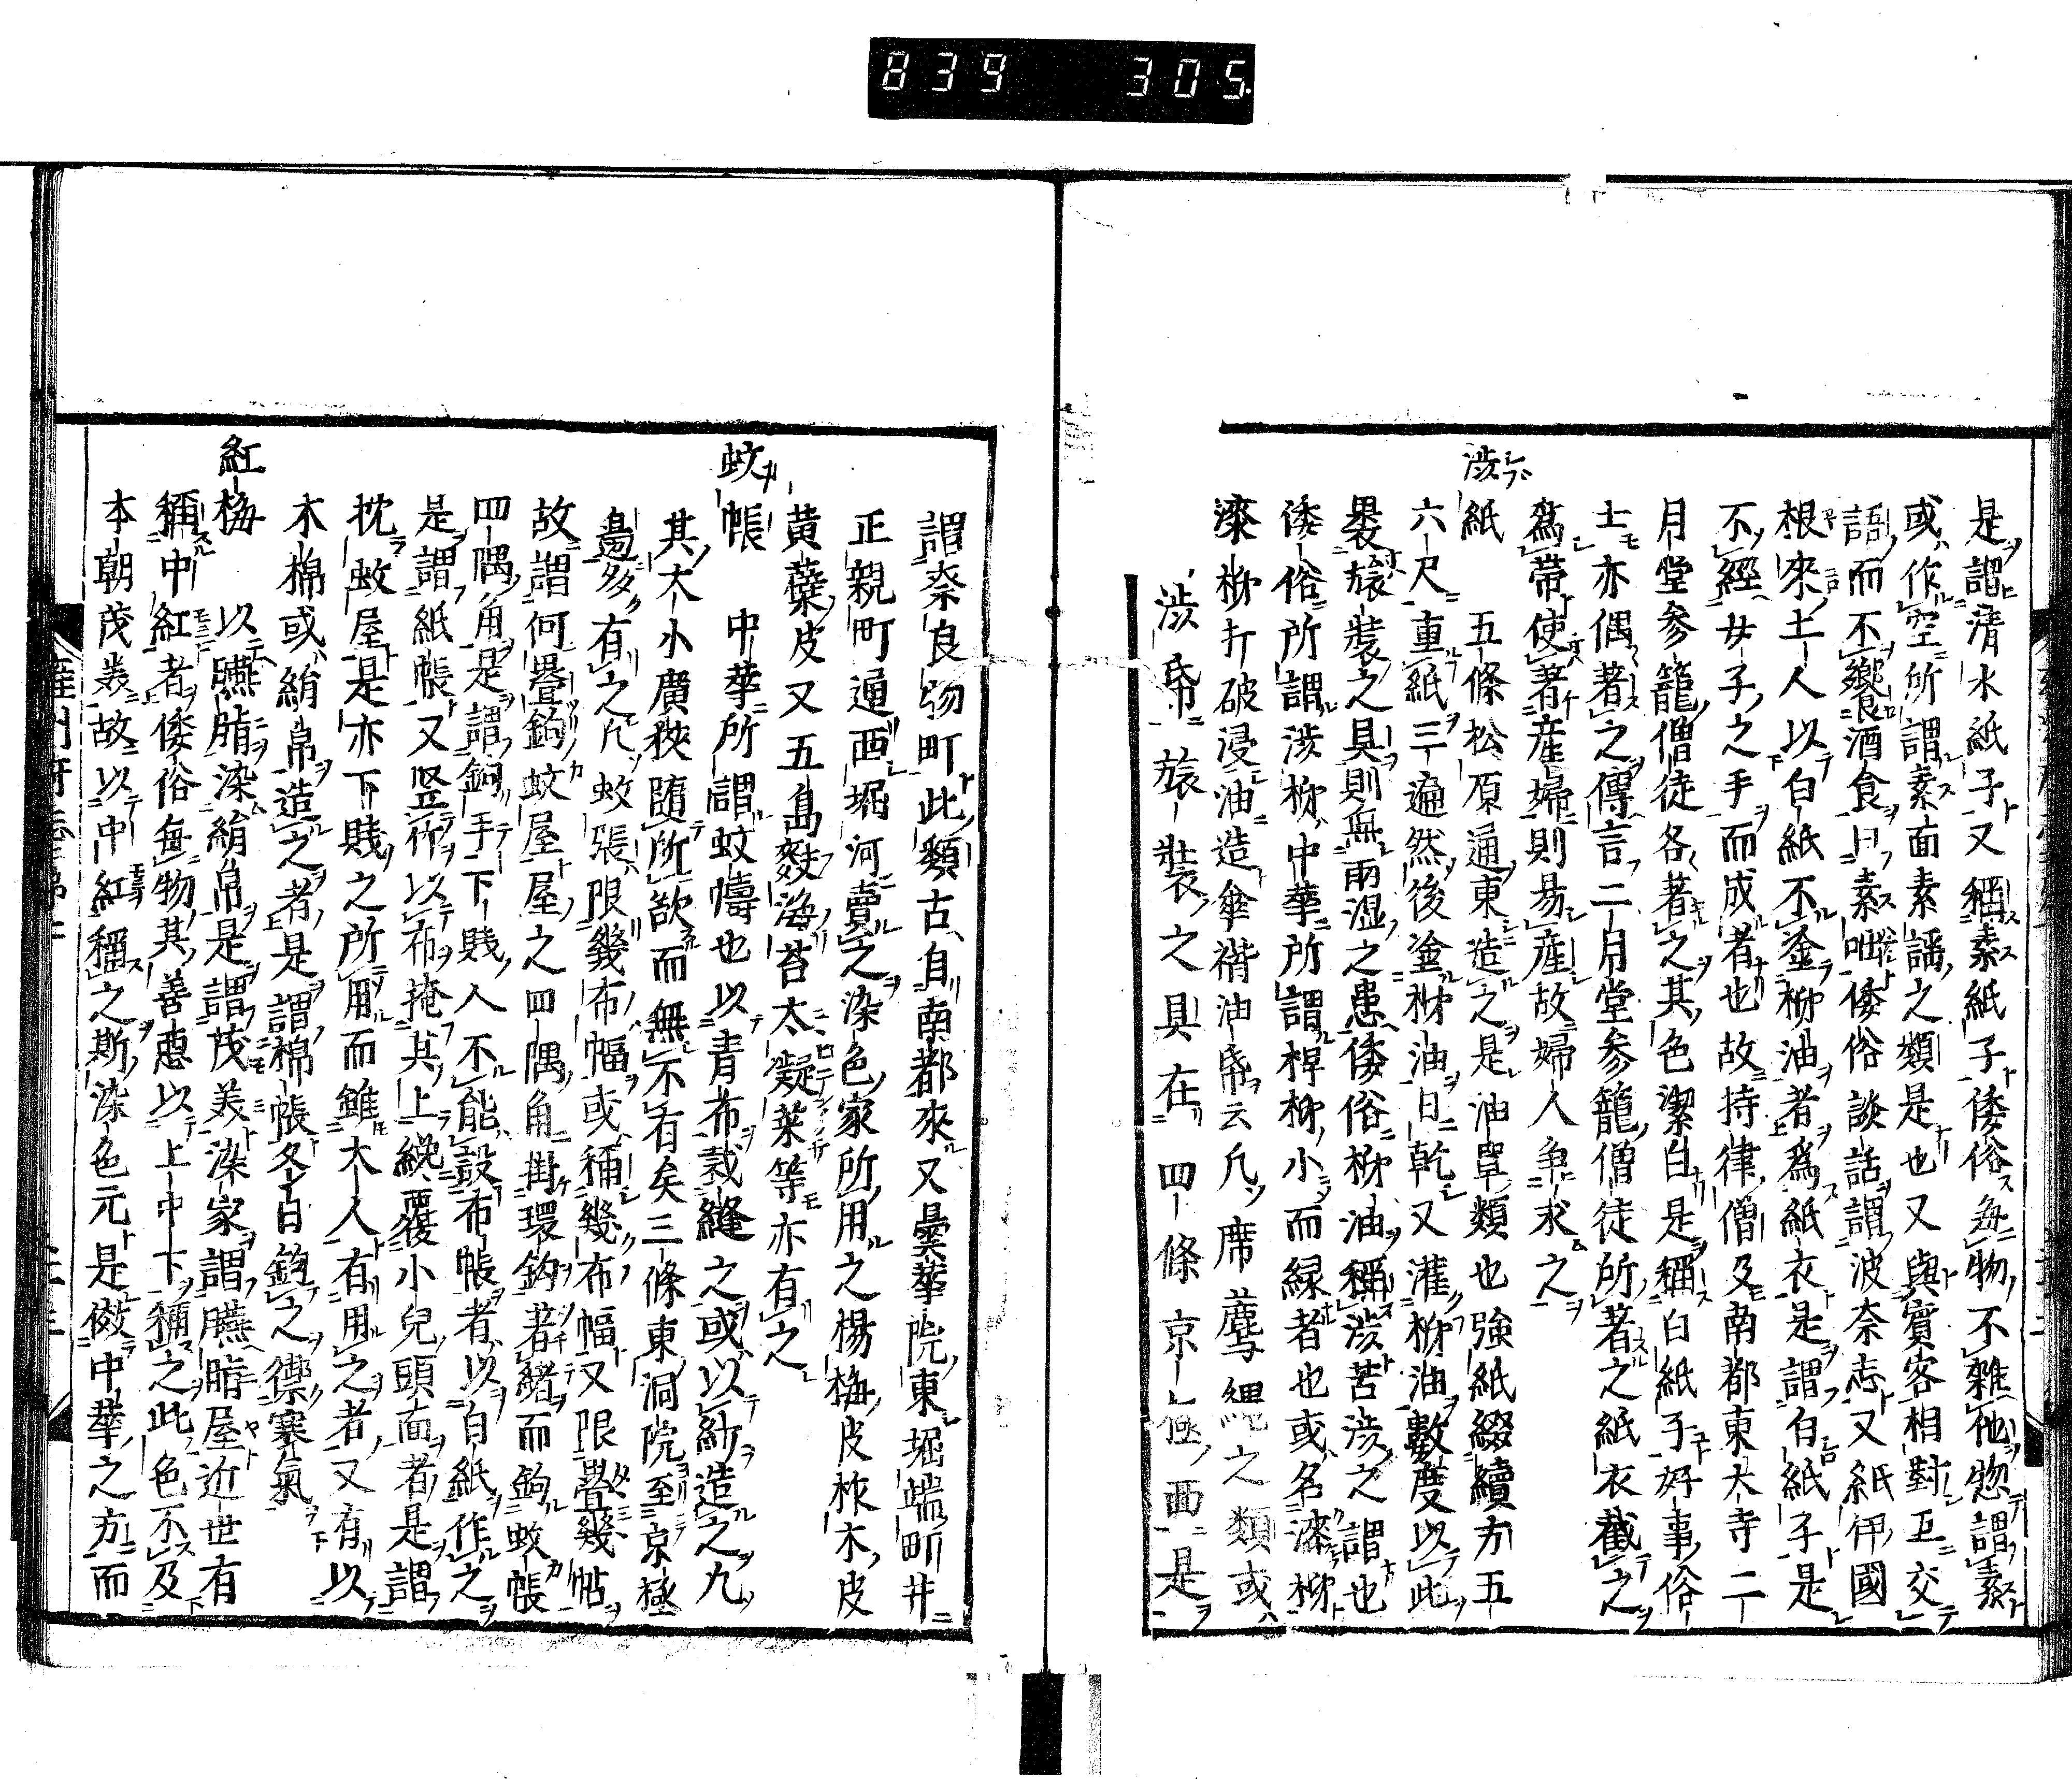 839 305
是謂清水紙子又稱素紙子倭俗每物不雜他惣謂素
或作空所謂素面素謡之類是也又與賓客相對互交
語而不饗酒食曰素咄倭俗談話謂波奈志又紙仔國
根來土人以白紙不塗柹油者爲紙衣是謂白紙子是
不經女子之手而成者也故持律僧及南都東大寺二
月堂參籠僧徒各著之其色潔白是稱白紙子好事俗
士亦偶著之傳言二月堂參籠僧徒所著之紙衣截之
爲帶使著產婦則易產故婦人爭求之
澁紙 五條松原通東造之是油單類也強紙綴續方五
六尺重紙三遍然後塗柹油日乾又灌柹油數度以此
裹旅裝之具則無雨湿之患倭俗柹油稱澁苦澁之謂也
倭俗所謂澁柹中華所謂椑柹小而緑者也或名漆柹
漆柹打破浸油造傘褙油帋云凡席蓙縄之類或
澁帋旅裝之具在四條京極西是
謂奈良物町此類古自南都來又曇華院東堀端町井
正親町通西堀河賣之染色家所用之楊梅皮柞木皮
黄蘗皮又五島麩海苔太凝菜等亦有之
蚊帳 中華所謂蚊幬也以青布裁縫之或以紗造之凡
其大小廣狹随所欲而無不有矣三條東洞院至京極
邊多有之凡蚊張限幾布幅或稱幾布幅又限疊幾帖
故謂何疊鈎蚊屋屋之四隅角掛環鈎著緒而鈎蚊帳
四隅角是謂鈎手下賤人不能設布帳者以白紙作之
是謂紙帳又竪作以布掩其上纔覆小兒頭面者是謂
枕蚊屋是亦下賤之所用而雖大人有用之者又有以
木棉或絹帛造之者是謂棉帳冬日鈎之禦寒氣
紅梅 以臙脂染絹帛是謂茂美染家謂臙脂屋近世有
稱中紅者倭俗每物其善惡以上中下稱之此色不及
本朝茂美故以中紅稱之斯染色元是傚中華之方而